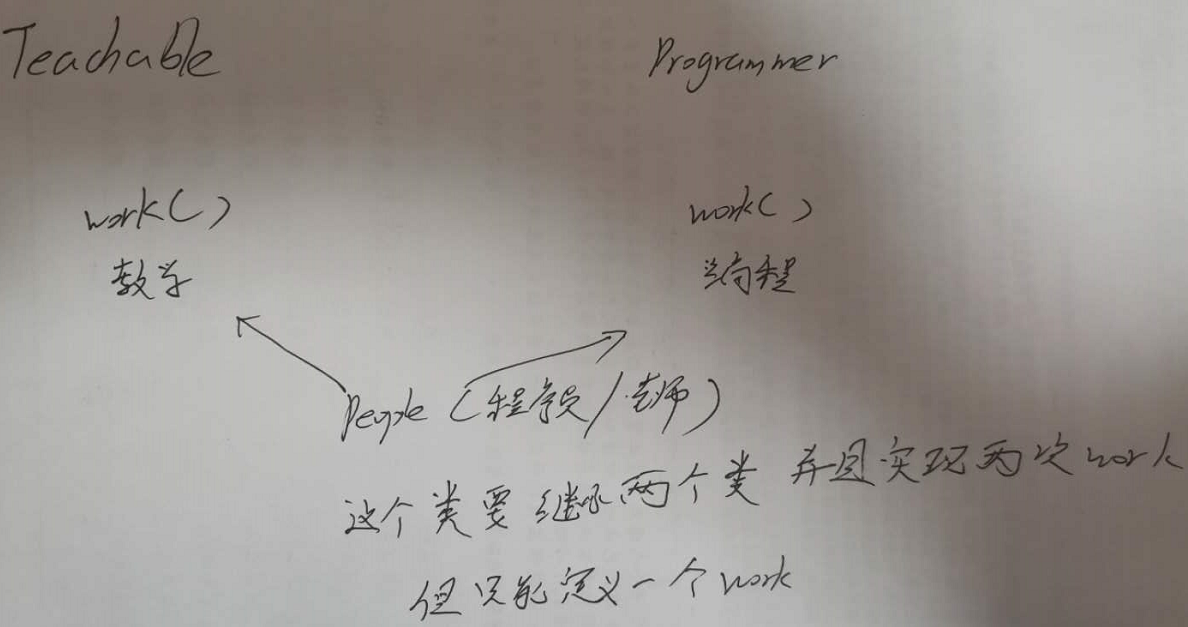 Teachable
Programmer
work()
教学
work()
编程
People (程序员/老师)
这个类要继承两个类 并且实现两次work
但只能定义一个work